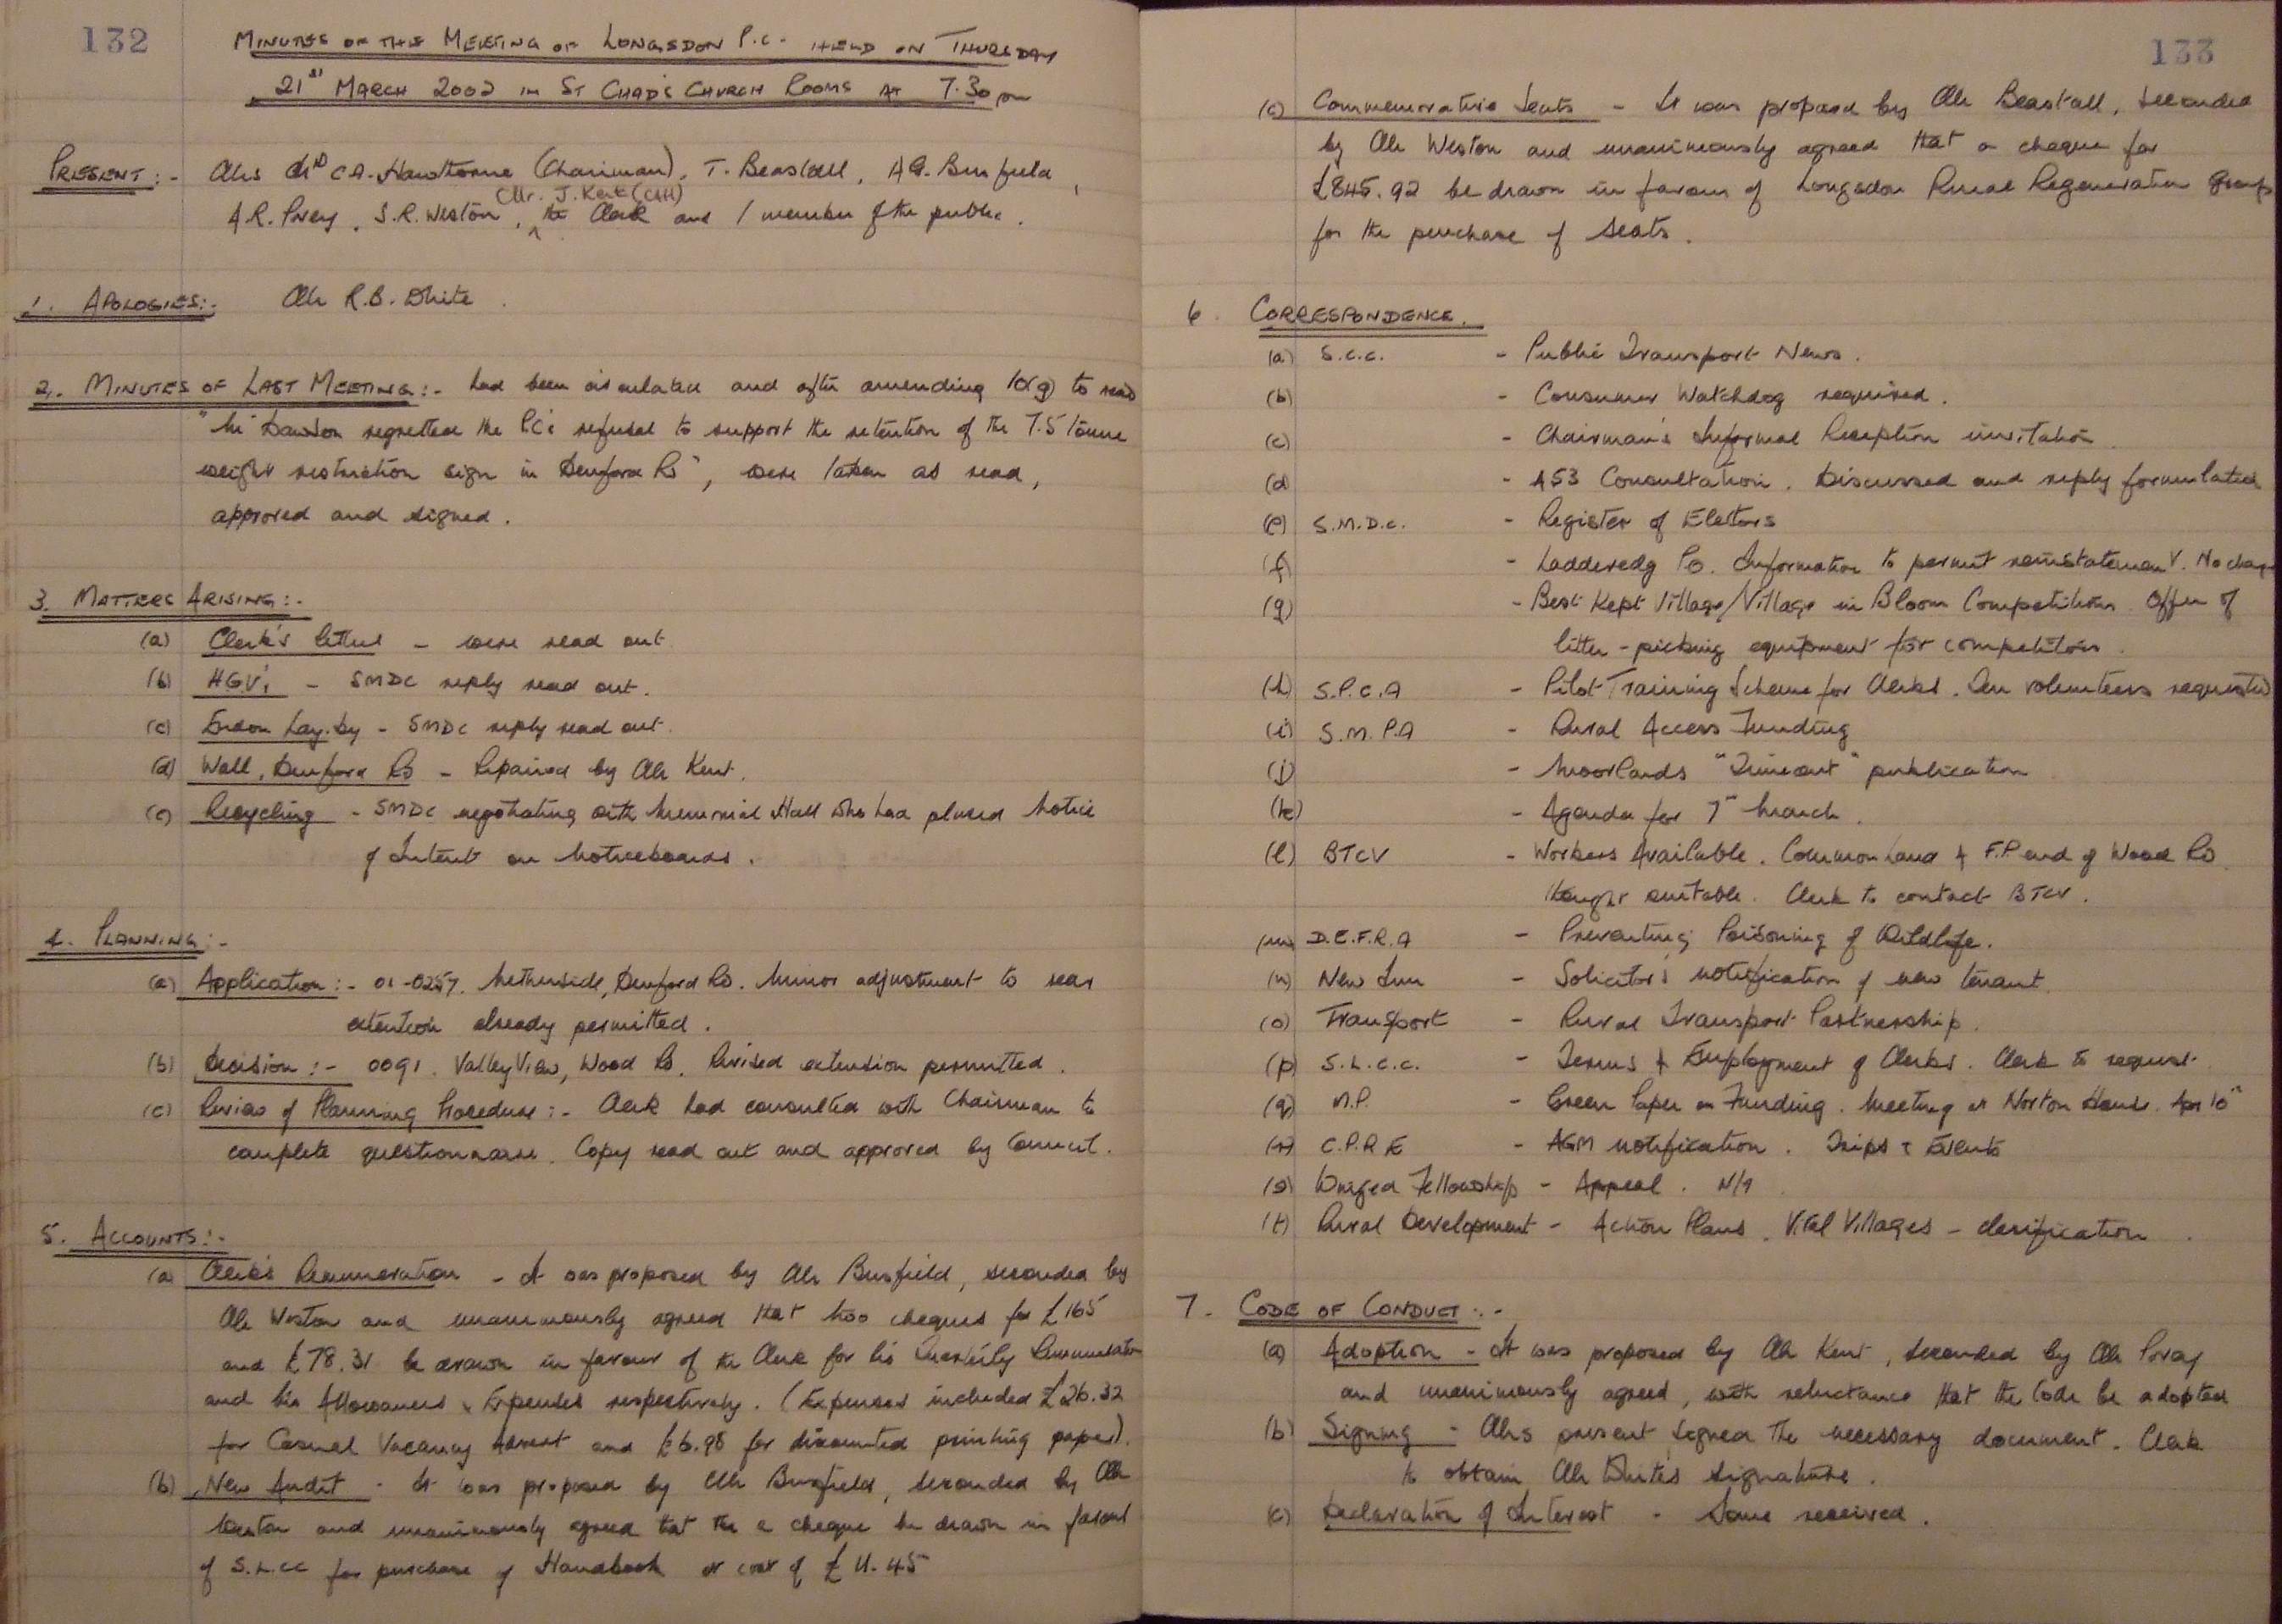 132
MINUTES OF THE MEETING OF LONGSDON P.C. HELD ON THURSDAY
21st MARCH 2002 IN ST CHAD'S CHURCH ROOMS AT 7.30 pm
PRESENT :- Cllrs C A. Hawthorne (Chairman), T. Beastall, A G. Busfield,
Cllr. J. Kent (CHH)
A R. Povey, S.R. Weston, the Clerk and 1 member of the public.
1. APOLOGIES :- Cllr R.B. White
2. MINUTES OF LAST MEETING :- had been circulated and after amending 10(g) to read
"Mr Dawson regretted the P.C's refusal to support the retention of the 7.5 tonne
weight restriction sign in Denford Rd", were taken as read,
approved and signed.
3. MATTERS ARISING :-
(a) Clerk's letters - were read out
(b) HGV's - SMDC reply read out.
(c) Endon Lay-by - SMDC reply read out.
(d) Wall, Denford Rd - Repaired by Cllr Kent.
(e) Recycling - SMDC negotiating with Memorial Hall who had placed Notice
of Intent on Noticeboards.
4. PLANNING :-
(a) Application :- 01-0257. Netherside, Denford Rd. Minor adjustment to rear
extention already permitted.
(b) Decision :- 0091. Valley View, Wood Rd. Revised extension permitted.
(c) Review of Planning Procedure :- Clerk had consulted with Chairman to
complete questionnaire. Copy read out and approved by Council.
5. ACCOUNTS :-
(a) Clerk's Remuneration - It was proposed by Cllr Busfield, seconded by
Cllr Weston and unanimously agreed that two cheques for £165
and £78.31 be drawn in favour of the Clerk for his Quarterly Remuneration
and his Allowances & Expenses respectively. (Expenses included £26.32
for Casual Vacancy Advert and £6.98 for discounted printing paper).
(b) New Audit - It was proposed by Cllr Busfield, seconded by Cllr
Weston and unanimously agreed that the a cheque be drawn in favour
of S.L.CC for purchase of Handbook at cost of £11.45
133
(c) Commemorative Seats - It was proposed by Cllr Beastall, seconded
by Cllr Weston and unanimously agreed that a cheque for
£845.92 be drawn in favour of Longsdon Rural Regeneration Group
for the purchase of seats.
6. CORRESPONDENCE.
(a) S.C.C. - Public Transport News.
(b) - Consumer Watchdog required.
(c) - Chairman's Informal Reception invitation
(d) - A53 Consultation. Discussed and reply formulated
(e) S.M.D.C. - Register of Electors
(f) - Ladderedg PO. Information to permit reinstatement. No change
(g) - Best Kept Village/Village in Bloom Competitions. Offer of
litter-picking equipment for competitors.
(h) S.P.C.A - Pilot Training Scheme for Clerks. Ten volunteers requested
(i) S.M.P.A - Rural Access Funding
(j) - Moorlands "Timeout" publication
(k) - Agenda for 7th March.
(l) BTCV - Workers Available. Common Land & F.P. end of Wood Rd
thought suitable. Clerk to contact BTCV.
(m) D.E.F.R.A - Preventing Poisoning of Wildlife.
(n) New Inn - Solicitor's notification of new tenant.
(o) Transport - Rural Transport Partnership.
(p) S.L.C.C. - Terms & Employment of Clerks. Clerk to request
(q) M.P. - Green Paper on Funding. Meeting at Norton Apr 10th
(r) C.P.R E - AGM notification. Trips & Events
(s) Winged Fellowship - Appeal. N/A
(t) Rural Development - Action Plans. Vital Villages - clarification.
7. CODE OF CONDUCT :-
(a) Adoption - It was proposed by Cllr Kent, seconded by Cllr Povey
and unanimously agreed, with reluctance that the Code be adopted
(b) Signing - Cllrs present signed the necessary document. Clerk
to obtain Cllr White's signature.
(c) Declaration of Interest - Some received.